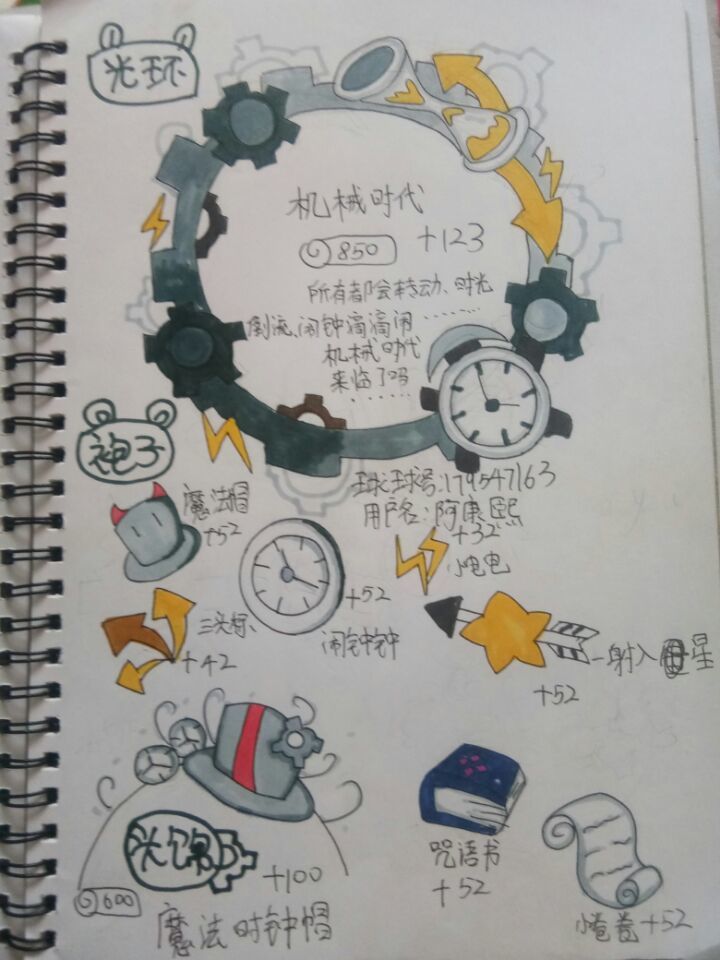 光环
机械时代
850 +123
所有都会转动、时光
倒流、闹钟滴滴闹……
机械时代
来临了吗
……
袍子
球球号:179547163
用户名:阿康熙
魔法帽
+52
+52
闹钟钟
+32
小电电
三头标、
+42
一射入星
+52
光饰
+100
600
魔法时钟帽
咒语书
+52
小卷卷+52